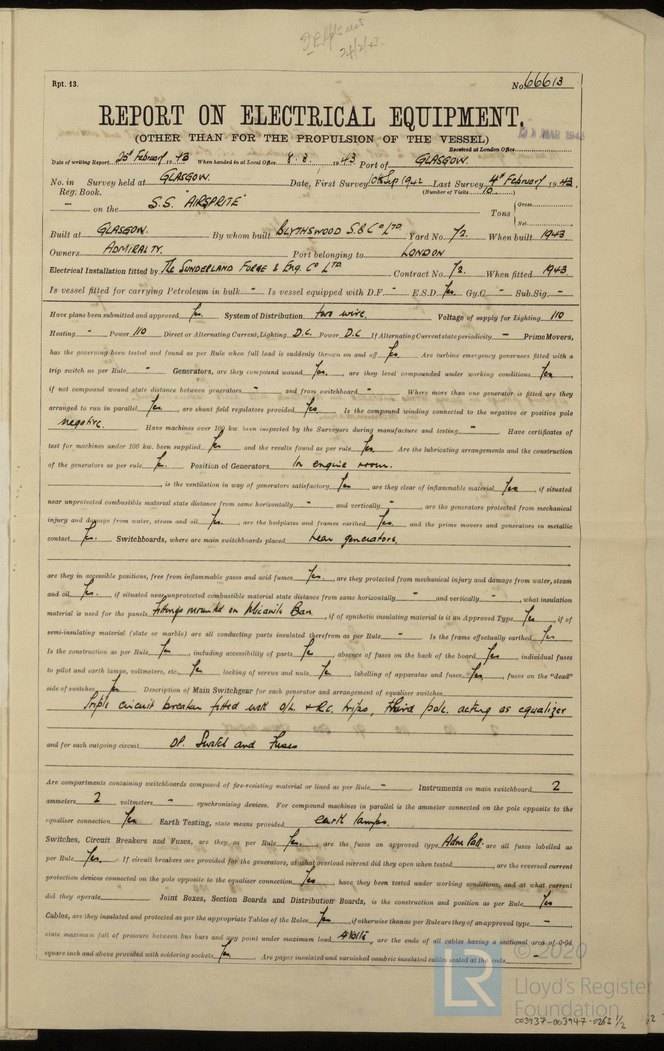 24/2/43.
Rpt. 13.
No. 66613
REPORT ON ELECTRICAL EQUIPMENT.
(OTHER THAN FOR THE PROPULSION OF THE VESSEL)
Received at London Office
MAR 1943
Date of writing Report 23rd February 1943 When handed in at Local Office 19 43 Port of GLASGOW.
No. in Survey held at GLASGOW. Date, First Survey 10th Sep 1942 Last Survey 4th February 1943.
Reg. Book. (Number of Visits 10)
- on the S.S. "AIRSPRITE" Tons { Gross
Net
Built at GLASGOW. By whom built BLYTHSWOOD S.B. Co LTD. Yard No. 72. When built 1943.
Owners ADMIRALTY. Port belonging to LONDON
Electrical Installation fitted by The SUNDERLAND FORGE & ENG. Co LTD. Contract No. 72. When fitted 1943
Is vessel fitted for carrying Petroleum in bulk - Is vessel equipped with D.F. - E.S.D. Yes Gy.C. - Sub.Sig. -
Have plans been submitted and approved Yes System of Distribution two wire. Voltage of supply for Lighting 110
Heating " Power 110 Direct or Alternating Current, Lighting D.C. Power D.C If Alternating Current state periodicity - Prime Movers,
has the governing been tested and found as per Rule when full load is suddenly thrown on and off Yes Are turbine emergency governors fitted with a
trip switch as per Rule " Generators, are they compound wound Yes, are they level compounded under working conditions Yes,
if not compound wound state distance between generators " and from switchboard " Where more than one generator is fitted are they
arranged to run in parallel Yes, are shunt field regulators provided Yes Is the compound winding connected to the negative or positive pole
negative. Have machines over 100 kw. been inspected by the Surveyors during manufacture and testing " Have certificates of
test for machines under 100 kw. been supplied Yes and the results found as per rule Yes Are the lubricating arrangements and the construction
of the generators as per rule Yes Position of Generators In engine room.
, is the ventilation in way of generators satisfactory Yes, are they clear of inflammable material Yes, if situated
near unprotected combustible material state distance from same horizontally " and vertically ", are the generators protected from mechanical
injury and damage from water, steam and oil Yes, are the bedplates and frames earthed Yes and the prime movers and generators in metallic
contact Yes. Switchboards, where are main switchboards placed near generators.
are they in accessible positions, free from inflammable gases and acid fumes Yes, are they protected from mechanical injury and damage from water, steam
and oil Yes, if situated near unprotected combustible material state distance from same horizontally " and vertically ", what insulation
material is used for the panels Fittings mounted on Micanite Bars, if of synthetic insulating material is it an Approved Type Yes, if of
semi-insulating material (slate or marble) are all conducting parts insulated therefrom as per Rule " Is the frame effectually earthed Yes
Is the construction as per Rule Yes, including accessibility of parts Yes, absence of fuses on the back of the board Yes, individual fuses
to pilot and earth lamps, voltmeters, etc. Yes locking of screws and nuts Yes, labelling of apparatus and fuses Yes, fuses on the "dead"
side of switches Yes Description of Main Switchgear for each generator and arrangement of equaliser switches
Triple circuit breaker fitted with o/L & R.C. trips, third pole acting as equalizer
and for each outgoing circuit DP. Switch and Fuses
Are compartments containing switchboards composed of fire-resisting material or lined as per Rule - Instruments on main switchboard 2
ammeters 2 voltmeters " synchronising devices. For compound machines in parallel is the ammeter connected on the pole opposite to the
equaliser connection Yes Earth Testing, state means provided earth lamps.
Switches, Circuit Breakers and Fuses, are they as per Rule Yes, are the fuses an approved type Adm. Patt. are all fuses labelled as
per Rule Yes. If circuit breakers are provided for the generators, at what overload current did they open when tested , are the reversed current
protection devices connected on the pole opposite to the equaliser connection Yes, have they been tested under working conditions, and at what current
did they operate Joint Boxes, Section Boards and Distribution Boards, is the construction and position as per Rule Yes
Cables, are they insulated and protected as per the appropriate Tables of the Rules Yes, if otherwise than as per Rule are they of an approved type -,
state maximum fall of pressure between bus bars and any point under maximum load 4 volts, are the ends of all cables having a sectional area of 0·04
square inch and above provided with soldering sockets Yes Are paper insulated and varnished cambric insulated cables sealed at the ends
© 2020
LR
Lloyd's Register
Foundation
003937-003947-0262 1/2